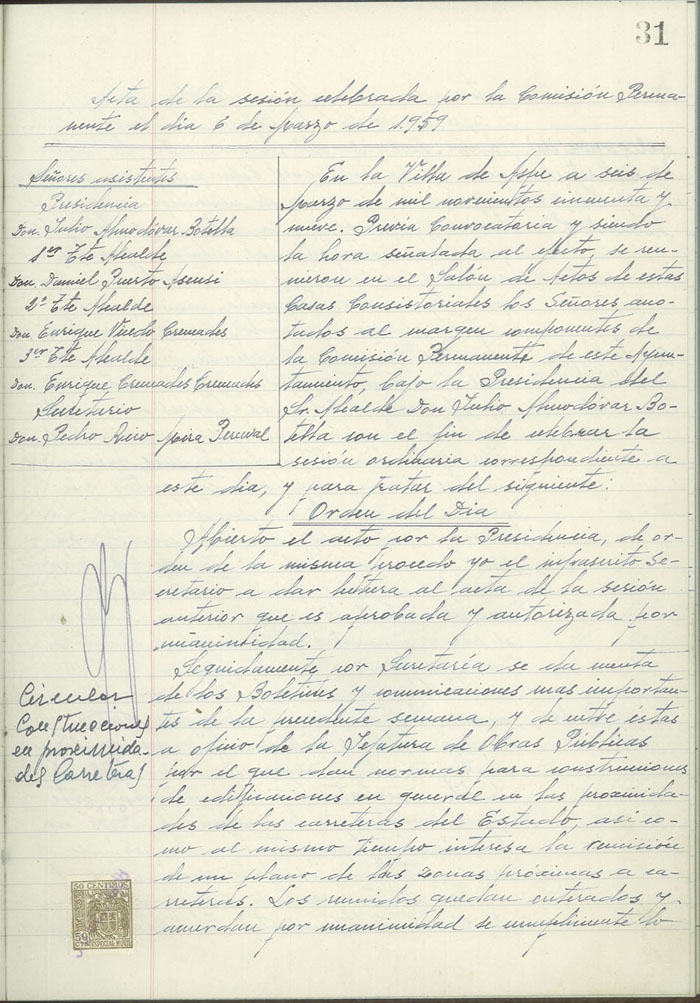 31
Acta de la sesión celebrada por la Comisión Perma-
nente el dia 6 de Marzo de 1.959
Señores asistentes
Presidencia
Don. Julio Almodóvar Botella
1er Tte Alcalde
Don. Daniel Puerto Asensi
2º Tte Alcalde
Don Enrique Cremades
3er Tte Alcalde
Don. Enrique Cremades Cremades
Secretario
Don. Pedro Mira Perceval
En la Villa de Aspe a seis de
Marzo de mil novecientos cincuenta y
nueve. Previa Convocatoria y siendo
la hora señalada al efecto, se reu-
nieron en el Salón de Actos de estas
Casas Consistoriales los Señores ano-
tados al margen componentes de
la Comisión Permanente de este Ayun-
tamiento, bajo la Presidencia del
Sr. Alcalde Don Julio Almodóvar Bo-
tella con el fin de celebrar la
sesión ordinaria correspondiente a
este dia, y para tratar del siguiente:
Orden del Dia
Abierto el acto por la Presidencia, de or-
den de la misma procedo yo el infrascrito Se-
cretario a dar lectura al acta de la sesión
anterior que es aprobada y autorizada por
unanimidad.
Seguidamente por Secretaría se da cuenta
de los Boletines y comunicaciones mas importan-
tes de la precedente semana, y de entre éstas
a oficio de la Jefatura de Obras Públicas
por el que dan normas para construcciones
de edificaciones en general en las proximida-
des de las carreteras del Estado, así co-
mo al mismo tiempo interesa la remisión
de un plano de las zonas próximas a ca-
rreteras. Los reunidos quedan enterados y
acuerdan por unanimidad se cumplimente lo
Circular
Construcciones
en proximida-
des Carreteras
50 CENTIMOS
50
CTS ESPECIAL MOVIL